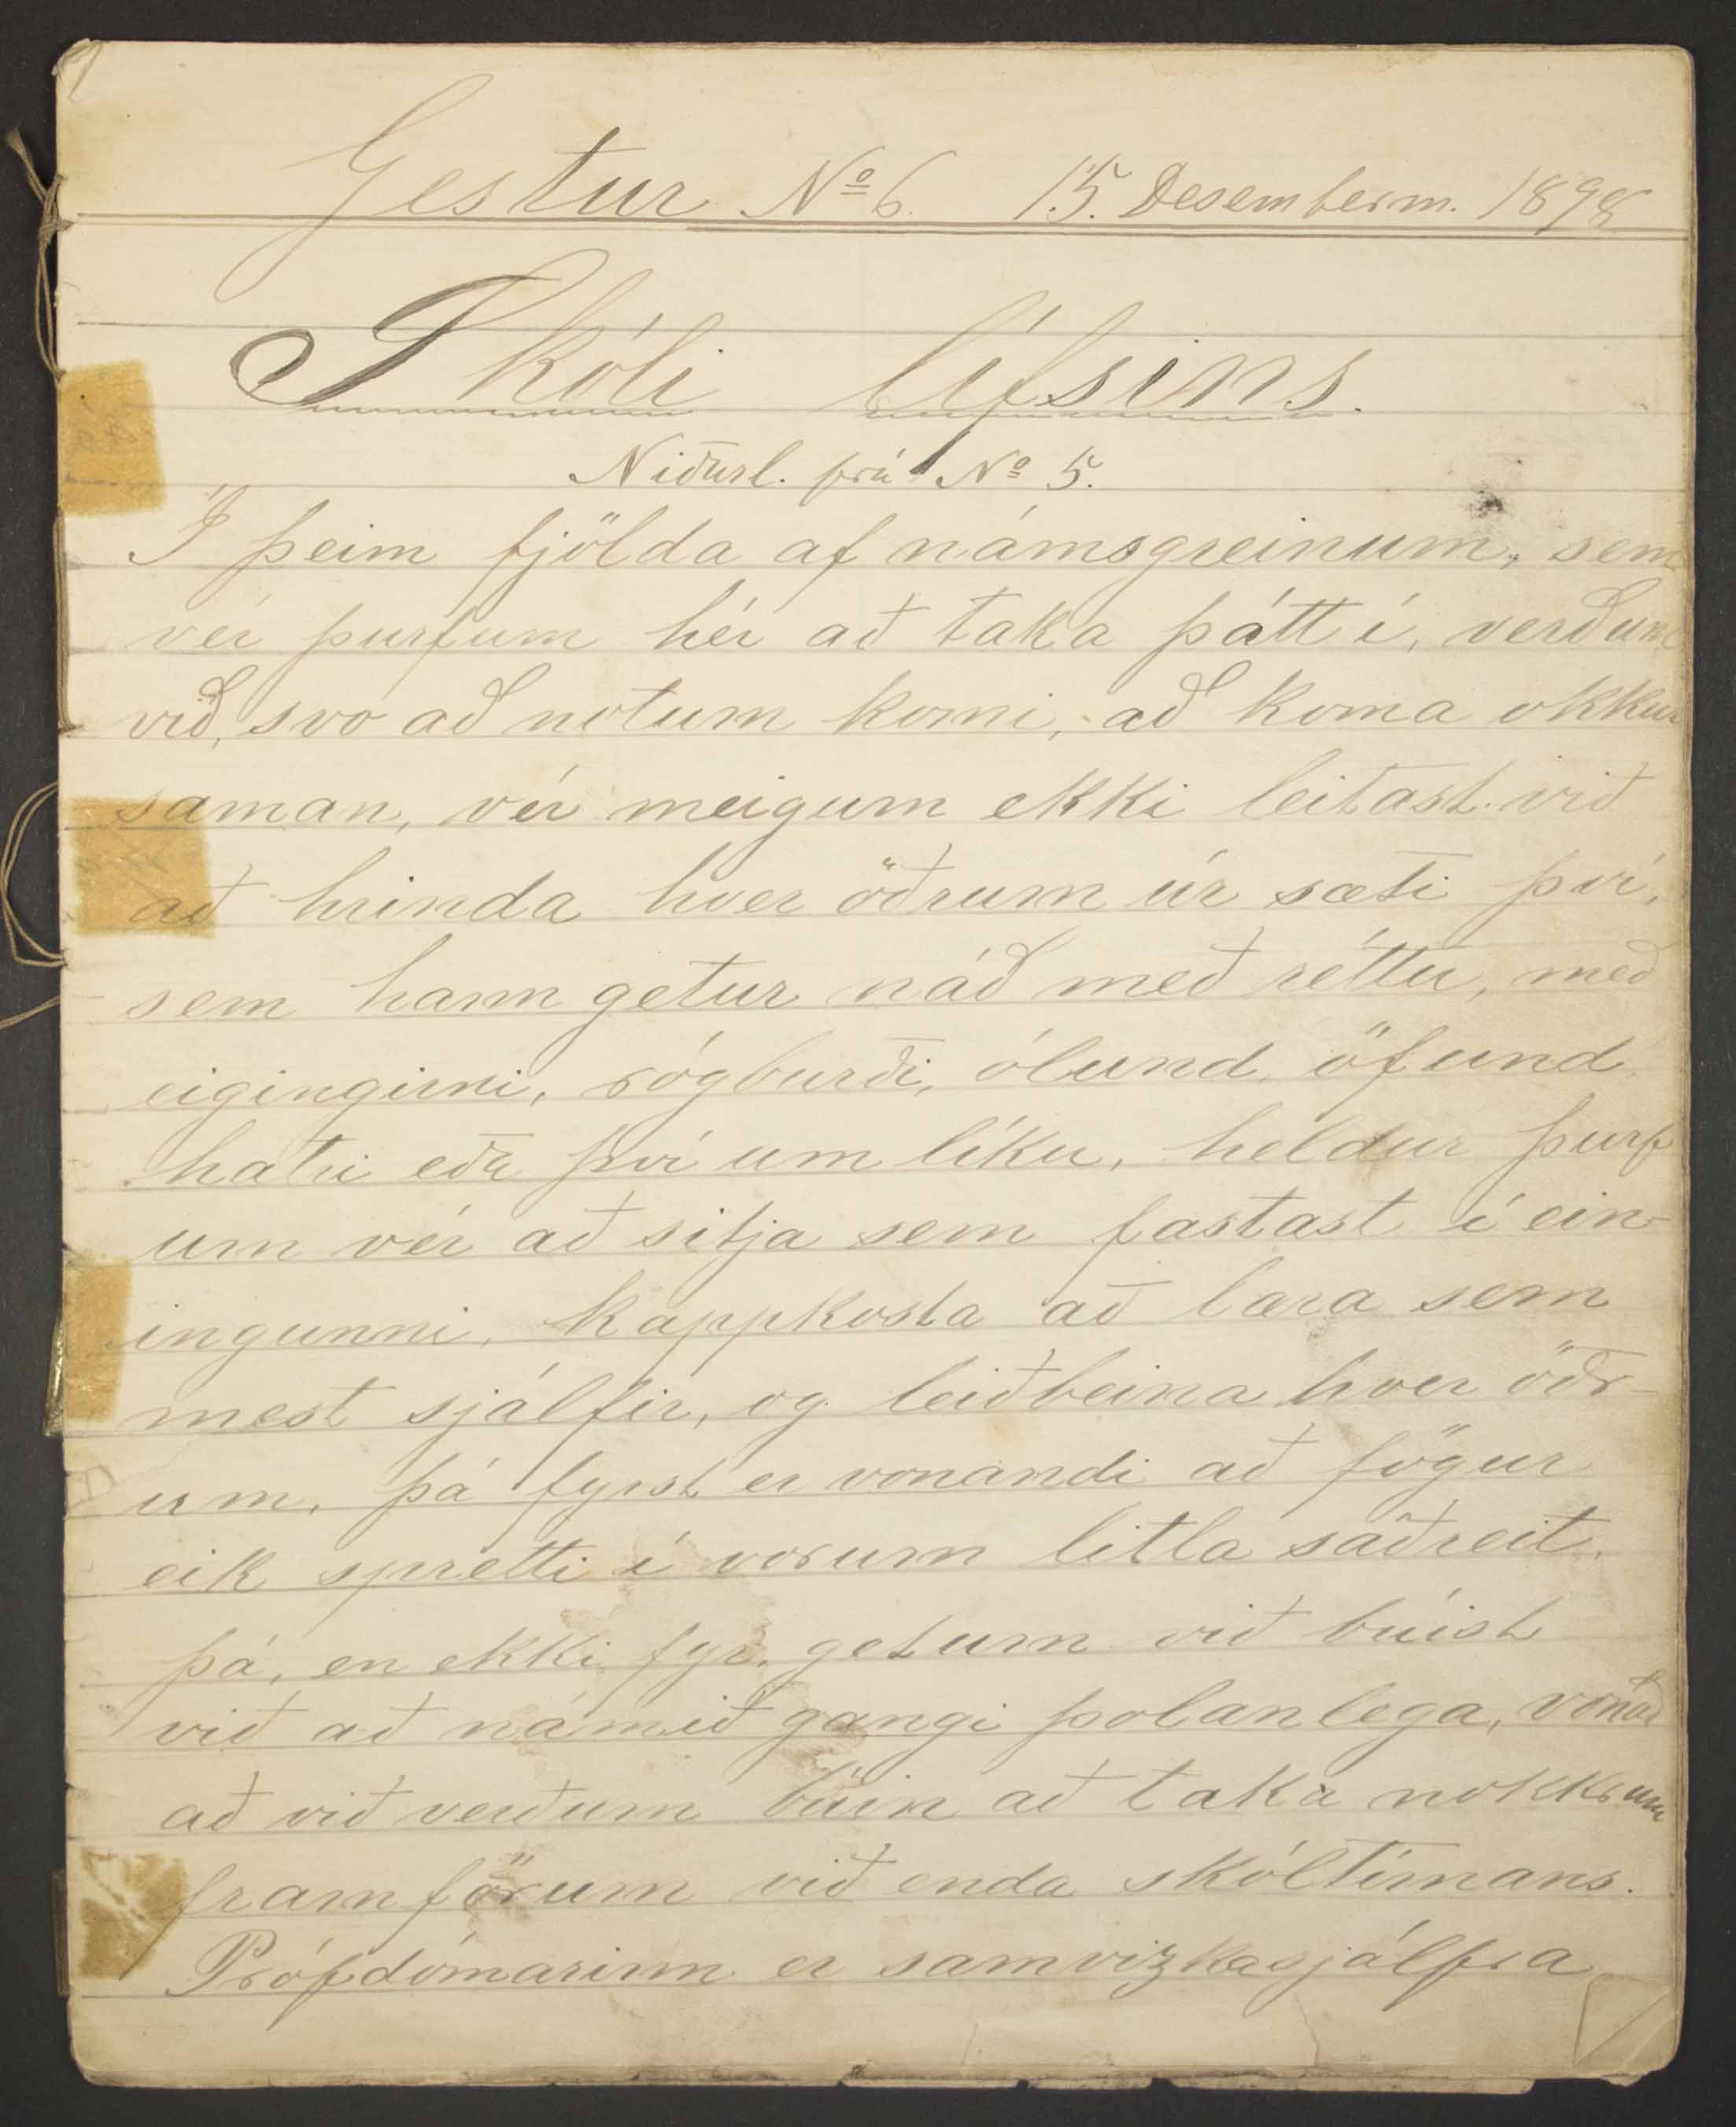 Gestur No 6. 15. Desemberm. 1898
Skóli lífsins.
Niðurl. frá No 5.
Í þeim fjölda af námsgreinum, sem
vér þurfum hér að taka þátt í, verðum
við, svo að notum komi, að koma okkur
saman, vér meigum ekki leitast við
að hrinda hver öðrum úr sæti því,
sem hann getur náð með réttu, með
eigingirni, rógburði, ólund, öfund,
hatri eða því um líku, heldur þurf
um vér að sitja sem fastast í ein-
ingunni, kappkosta að læra sem
mest sjálfir, og leiðbeina hver öðr-
um. þá fyrst er vonandi að fögur
eik spretti í vorum litla sáðreit.
þá, en ekki fyr, getum við búist
við að námið gangi þolanlega, vonað
að við verðum búin að taka nokkrum
framförum við enda skóltímans.
Prófdómarinn er samvizka sjálfra